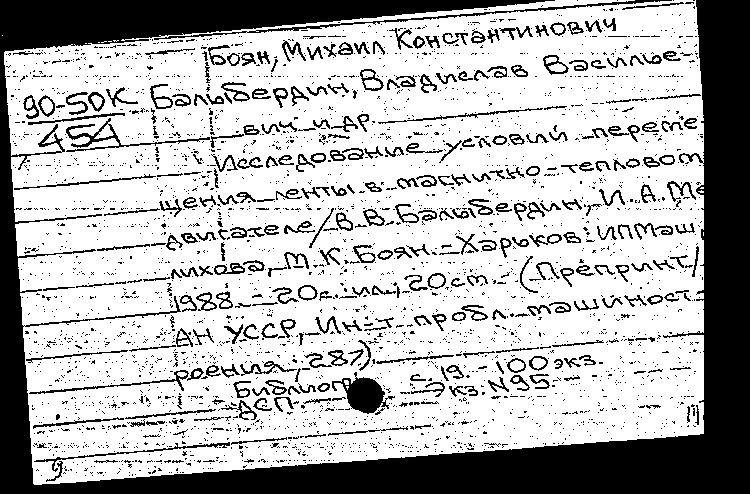 Боян, Михаил Константинович
90-50К Балыбердин, Владислав Василье-
454 вич и др.
Исследование условий переме-
щения ленты в магнитно-тепловом
двигателе / В.В. Балыбердин, И.А. Ме-
лихова, М.К. Боян. - Харьков: ИПМаш,
1988. - 20с.: ил.; 20см. - (Препринт /
АН УССР, Ин-т пробл. машиност-
роения; 287).
Библиогр. с. 19. - 100 экз.
ДСП. Экз. N95.